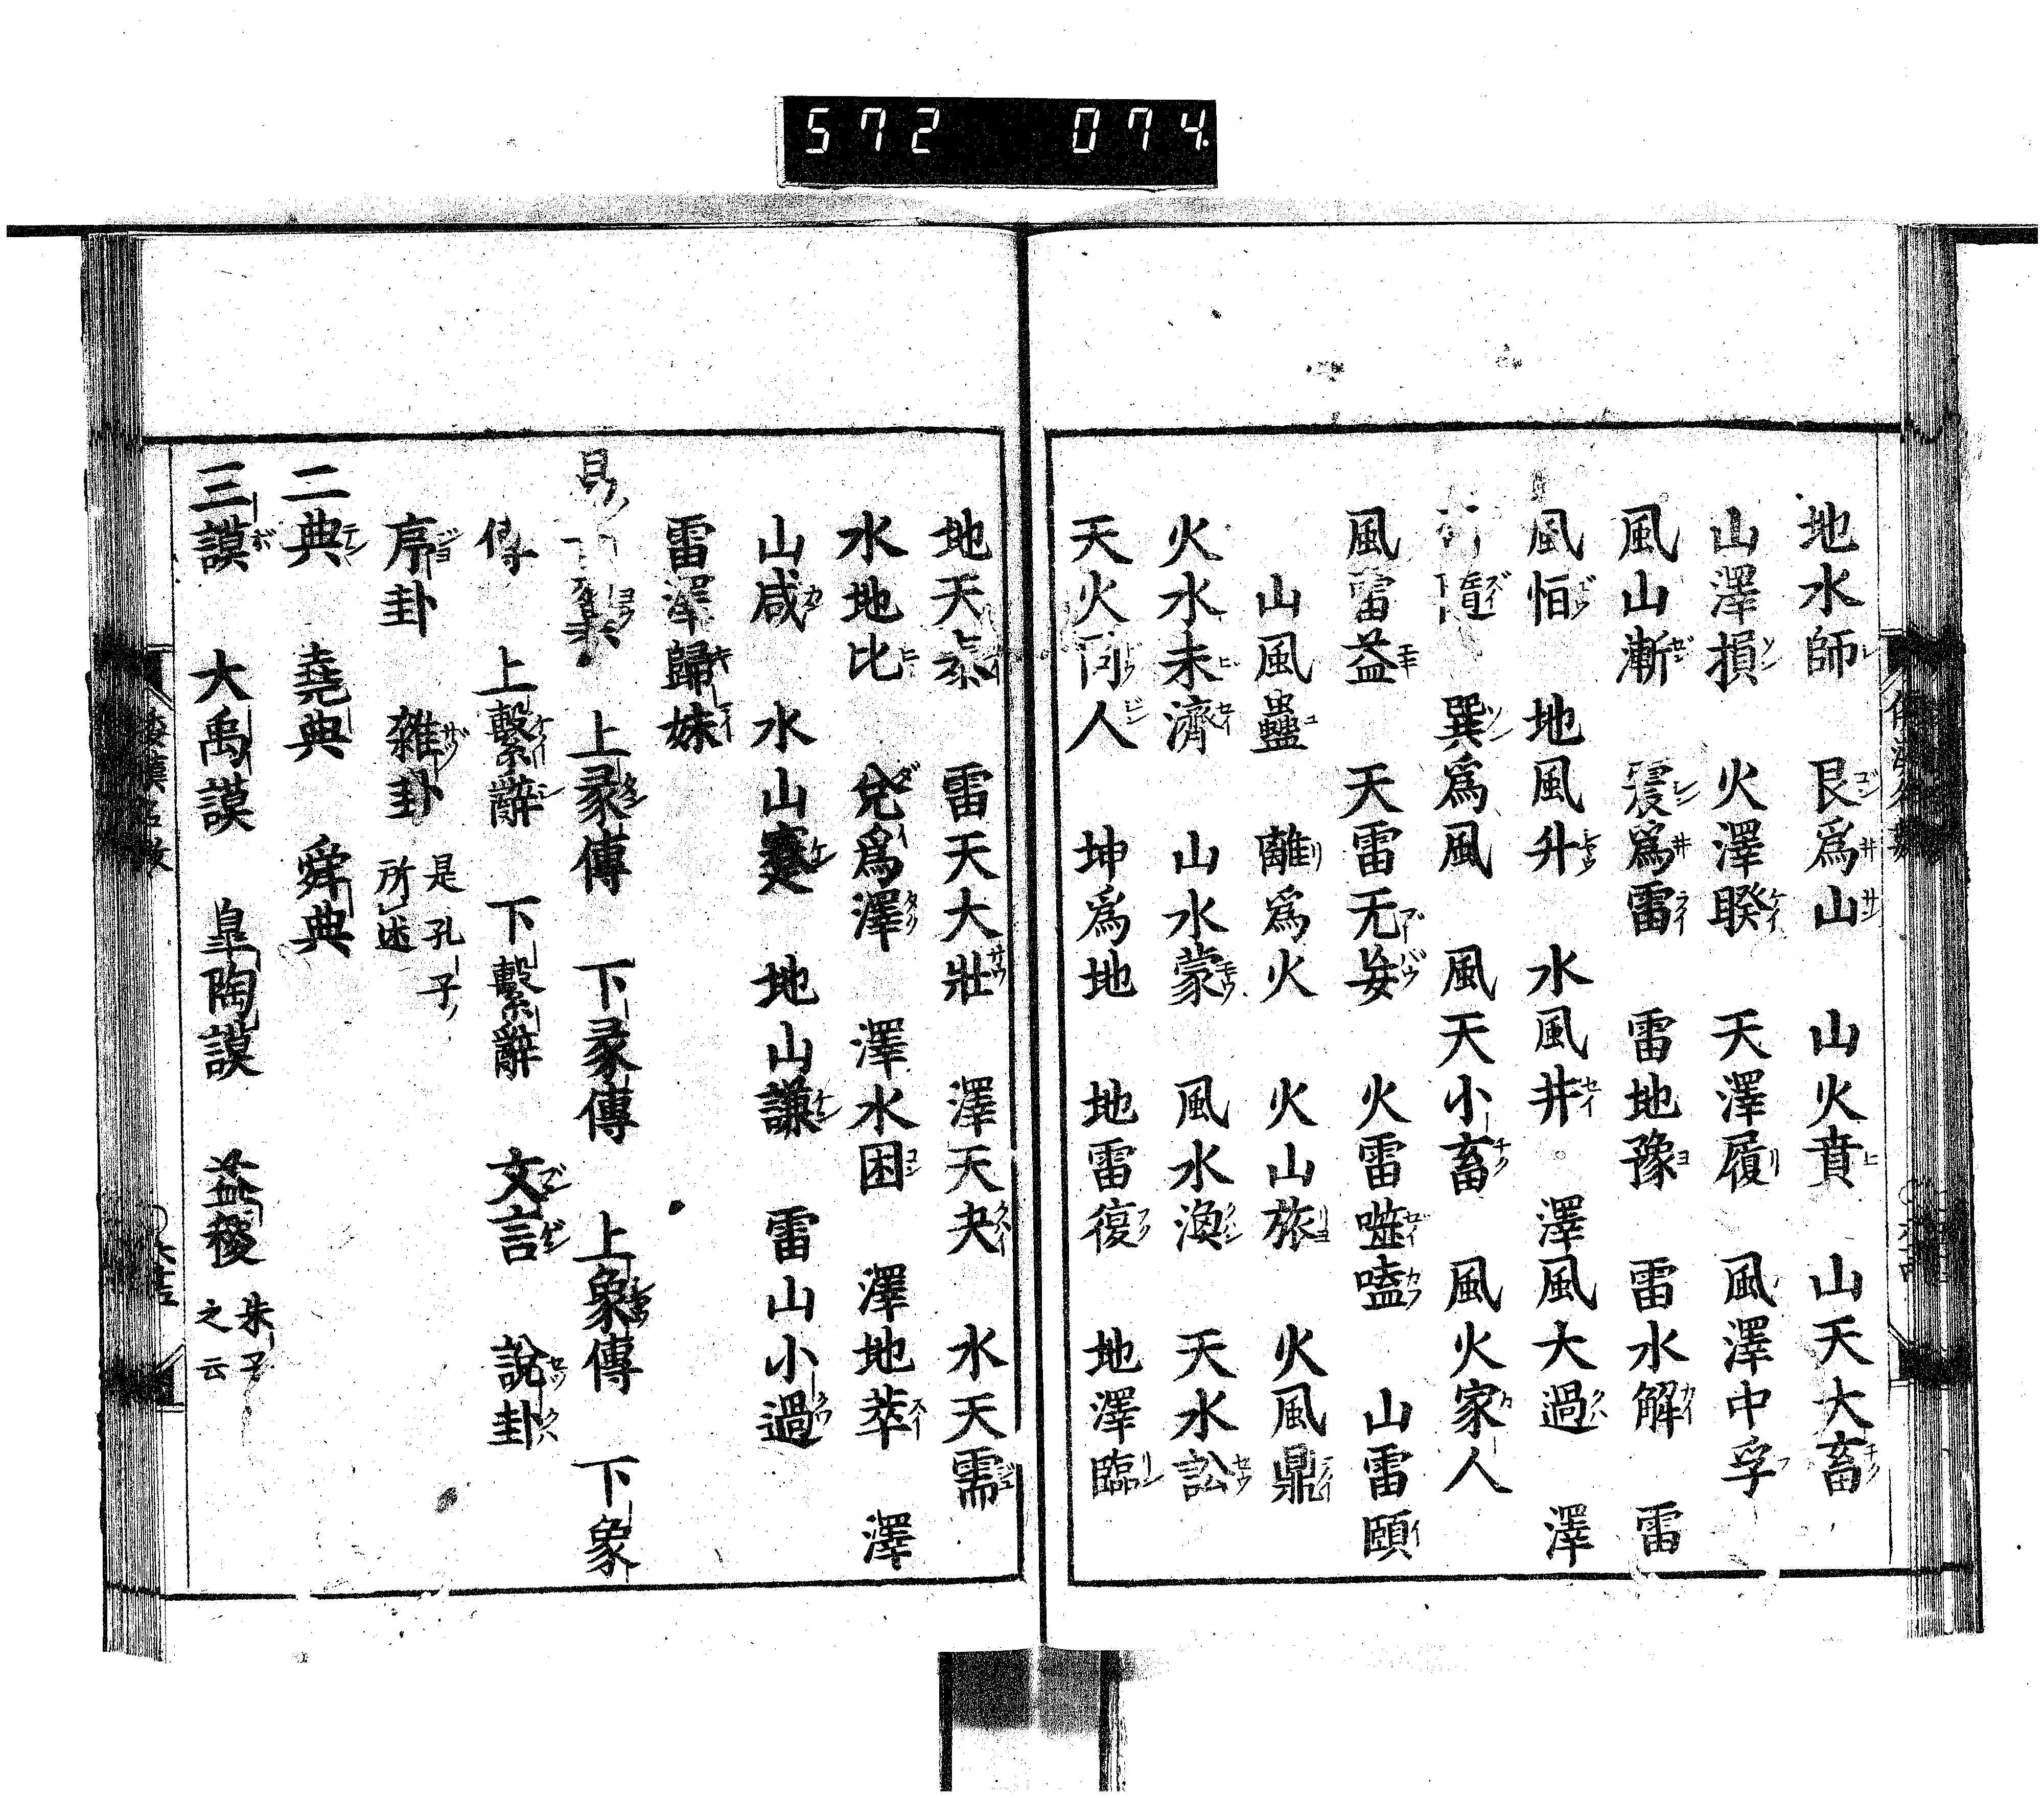 572 074
地水師 艮爲山 山火賁 山天大畜
山澤損 火澤睽 天澤履 風澤中孚
風山漸 震爲雷 雷地豫 雷水解 雷
風恒 地風升 水風井 澤風大過 澤
隨 巽爲風 風天小畜 風火家人
風雷益 天雷无妄 火雷噬嗑 山雷頤
山風蠱 離爲火 火山旅 火風鼎
火水未濟 山水蒙 風水渙 天水訟
天火同人 坤爲地 地雷復 地澤臨
地天泰 雷天大壯 澤天夬 水天需
水地比 兌爲澤 澤水困 澤地萃 澤
山咸 水山蹇 地山謙 雷山小過
雷澤歸妹
易ノ十翼 上彖傳 下彖傳 上象傳 下象
傳 上繫辭 下繫辭 文言 說卦
序卦 雜卦 是孔子ノ所述
二典 堯典 舜典
三謨 大禹謨 皐陶謨 益稷 朱子之云